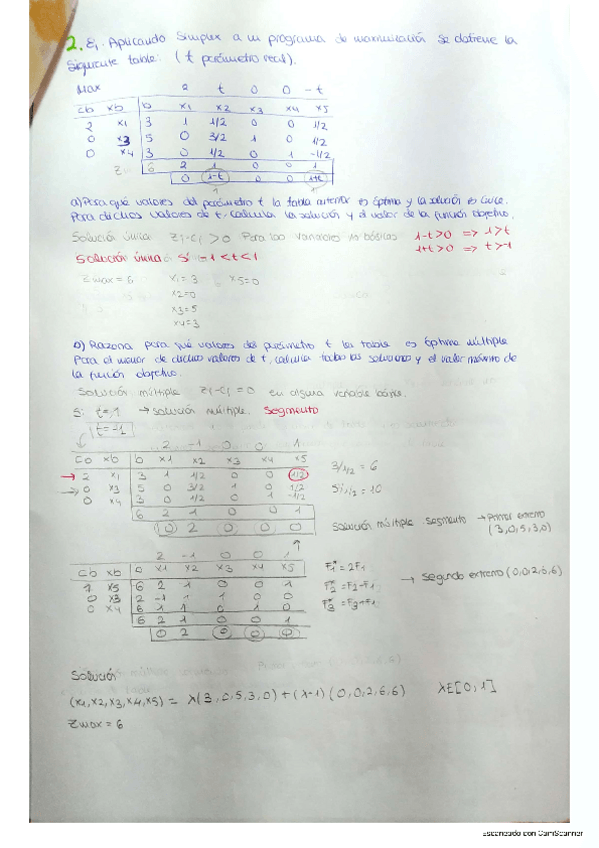 2. Ej. Aplicando Simplex a un programa de maximización se obtiene la
siguiente tabla: (t parámetro real).
Max 2 t 0 0 -t
cb xb b x1 x2 x3 x4 x5
2 x1 3 1 1/2 0 0 1/2
0 x3 5 0 3/2 1 0 1/2
0 x4 3 0 1/2 0 1 -1/2
Z 6 2 1 0 0 1
0 1-t 0 0 1+t
a) Para qué valores del parámetro t la tabla anterior es óptima y la solución es única.
Para dichos valores de t, calcular la solución y el valor de la función objetivo.
Solución única Zj-Cj > 0 Para las variables no básicas 1-t>0 => 1>t
1+t>0 => t>-1
Solución única Si -1<t<1
Zmax = 6 x1=3 x5=0
x2=0
x3=5
x4=3
b) Razona para qué valores del parámetro t la tabla es óptima múltiple
Para el menor de dichos valores de t, calcula todas las soluciones y el valor máximo de
la función objetivo.
Solución múltiple Zj-Cj=0 en alguna variable básica.
Si t=1 → solución múltiple. Segmento
t=-1
2 -1 0 0 1
cb xb b x1 x2 x3 x4 x5
2 x1 3 1 1/2 0 0 1/2 3/1/2 = 6
0 x3 5 0 3/2 1 0 1/2 5/1/2 = 10
0 x4 3 0 1/2 0 1 -1/2
6 2 1 0 0 1
0 2 0 0 0 Solución múltiple segmento → Primer extremo
(3,0,5,3,0)
2 -1 0 0 1
cb xb b x1 x2 x3 x4 x5 F1*=2F1
1 x5 6 2 1 0 0 1 F2*=F2-F1 → Segundo extremo (0,0,2,6,6)
0 x3 2 -1 1 1 0 0
0 x4 6 1 1 0 1 0
6 2 1 0 0 1
0 2 0 0 0
Solución
(x1,x2,x3,x4,x5) = λ(3,0,5,3,0)+(λ-1)(0,0,2,6,6) λ∈[0,1]
Zmax = 6
Escaneado con CamScanner